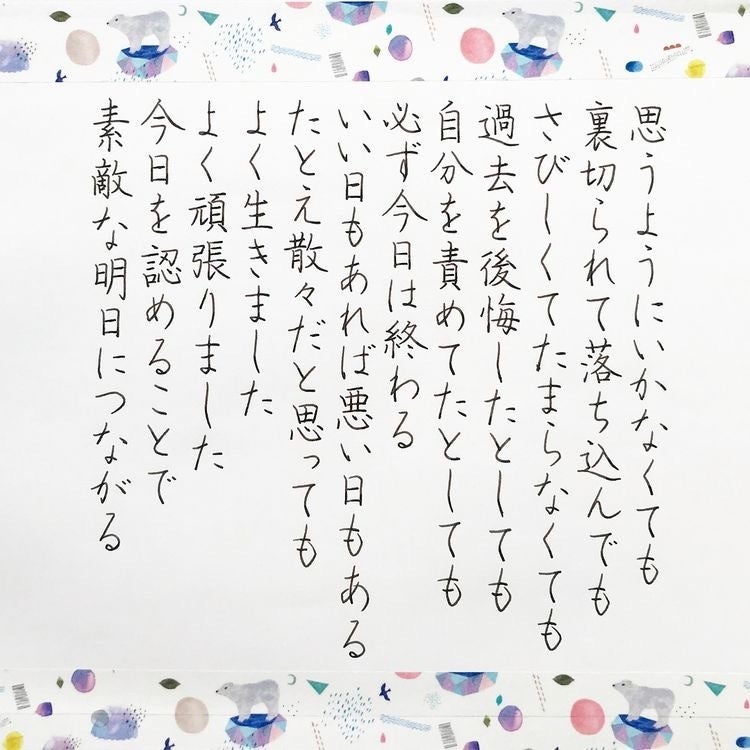 思うようにいかなくても
裏切られて落ち込んでも
さびしくてたまらなくても
過去を後悔したとしても
自分を責めてたとしても
必ず今日は終わる
いい日もあれば悪い日もある
たとえ散々だと思っても
よく生きました
よく頑張りました
今日を認めることで
素敵な明日につながる